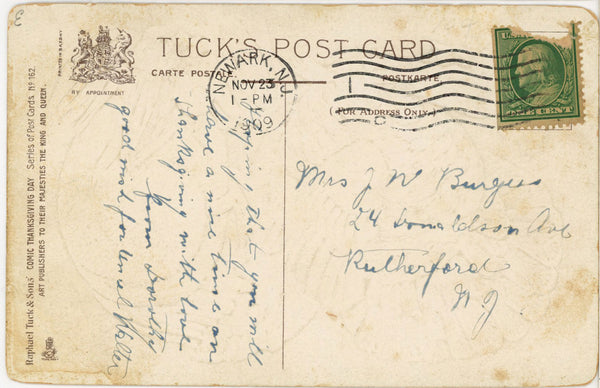 3
TUCK'S POST CARD
CARTE POSTALE
POSTKARTE
(FOR ADDRESS ONLY.)
PRINTED IN SAXONY
BY APPOINTMENT
Raphael Tuck & Sons' "COMIC THANKSGIVING DAY" Series of Post Cards Nº 162.
ART PUBLISHERS TO THEIR MAJESTIES THE KING AND QUEEN.
NEWARK, N.J.
NOV 23
1 - PM
1909
1
Hoping that you will
have a nice time on
thanksgiving with love
from Dorothy
good wish for Uncel Walter
Mrs J W Burgess
24 Donaldson Ave
Rutherford
N J